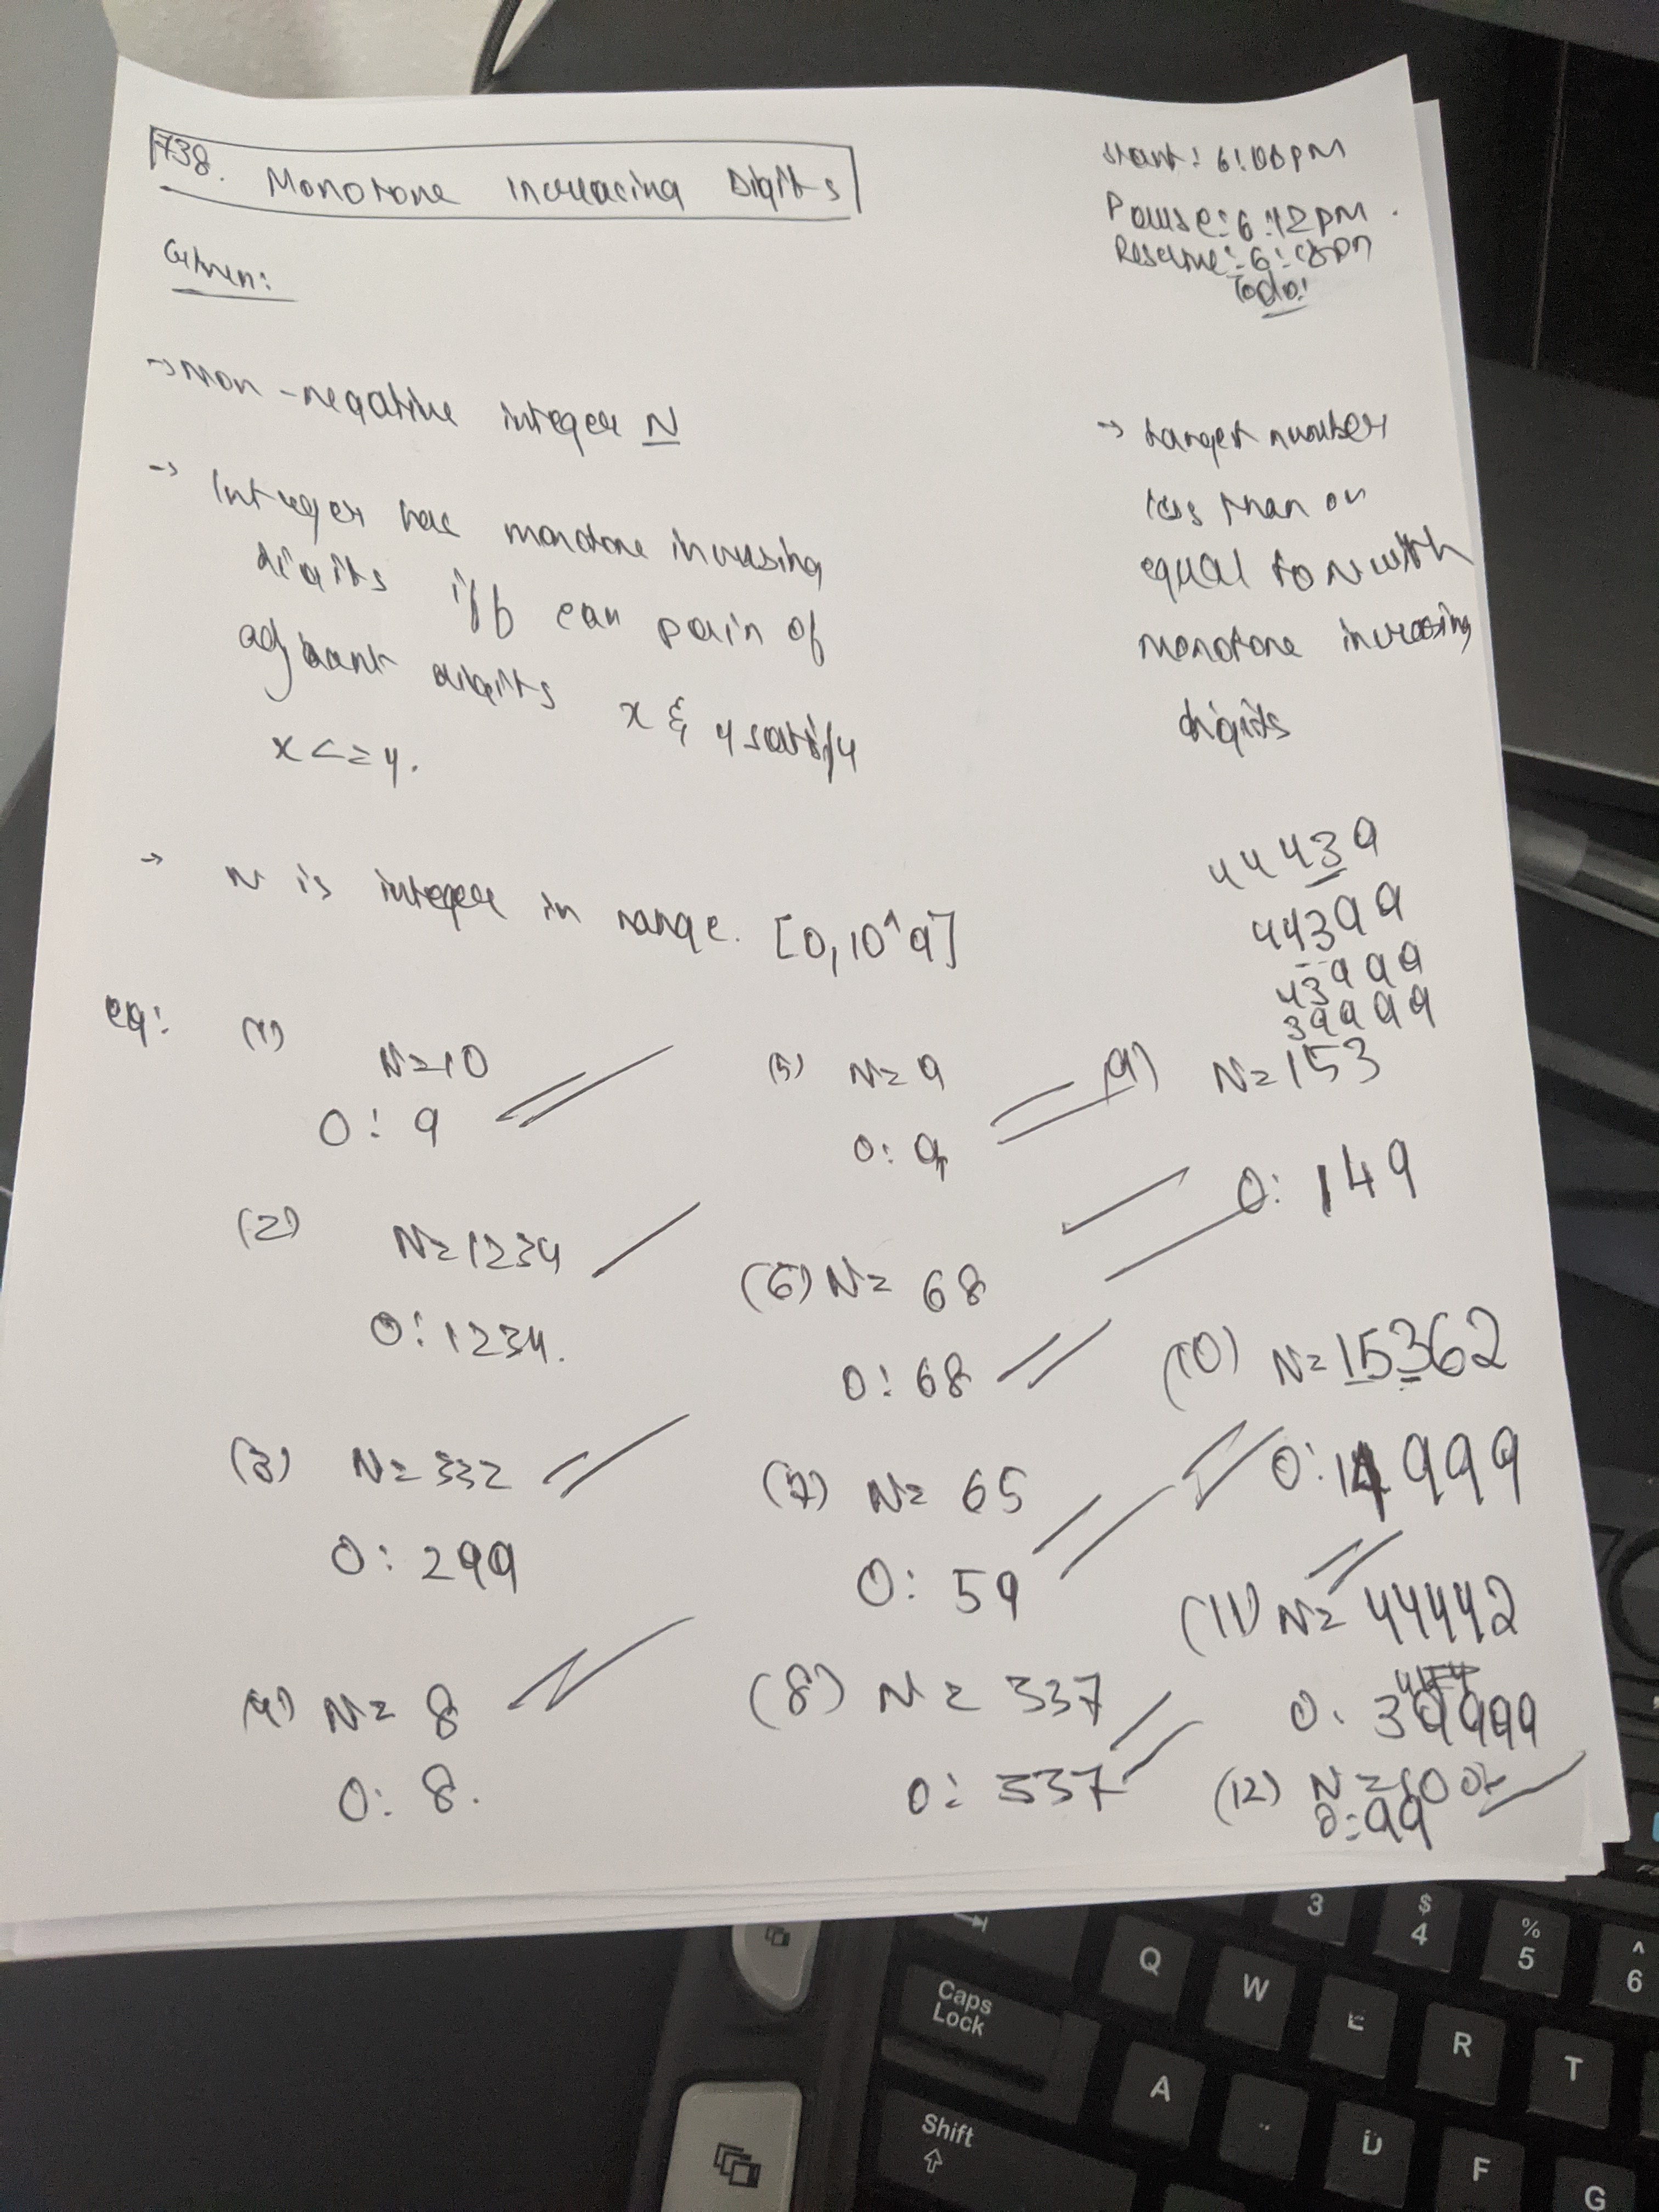 738. Monotone Increasing Digits
Start: 6:06PM
Pause: 6:12PM.
Resume: 6:18PM
Given:
Todo:
→ non-negative integer N
→ Integer has monotone increasing
digits iff each pair of
adjacent digits x & y satisfy
x<=y.
→ N is integer in range. [0,10^9]
→ largest number
less than or
equal to N with
monotone increasing
digits
44439
44399
43999
39999
eg:
(1) N=10
O: 9
(2) N=1234
O: 1234.
(3) N=332
O: 299
(4) N= 8
O: 8.
(5) N= 9
O: 9
(6) N= 68
O: 68
(7) N= 65
O: 59
(8) N = 337
O: 337
(9) N=153
O: 149
(10) N=15362
O: 14999
(11) N= 44442
O: 39999
(12) N=100
O:99
3
$
4
%
5
^
6
Q
W
E
R
T
Caps
Lock
A
D
F
G
Shift